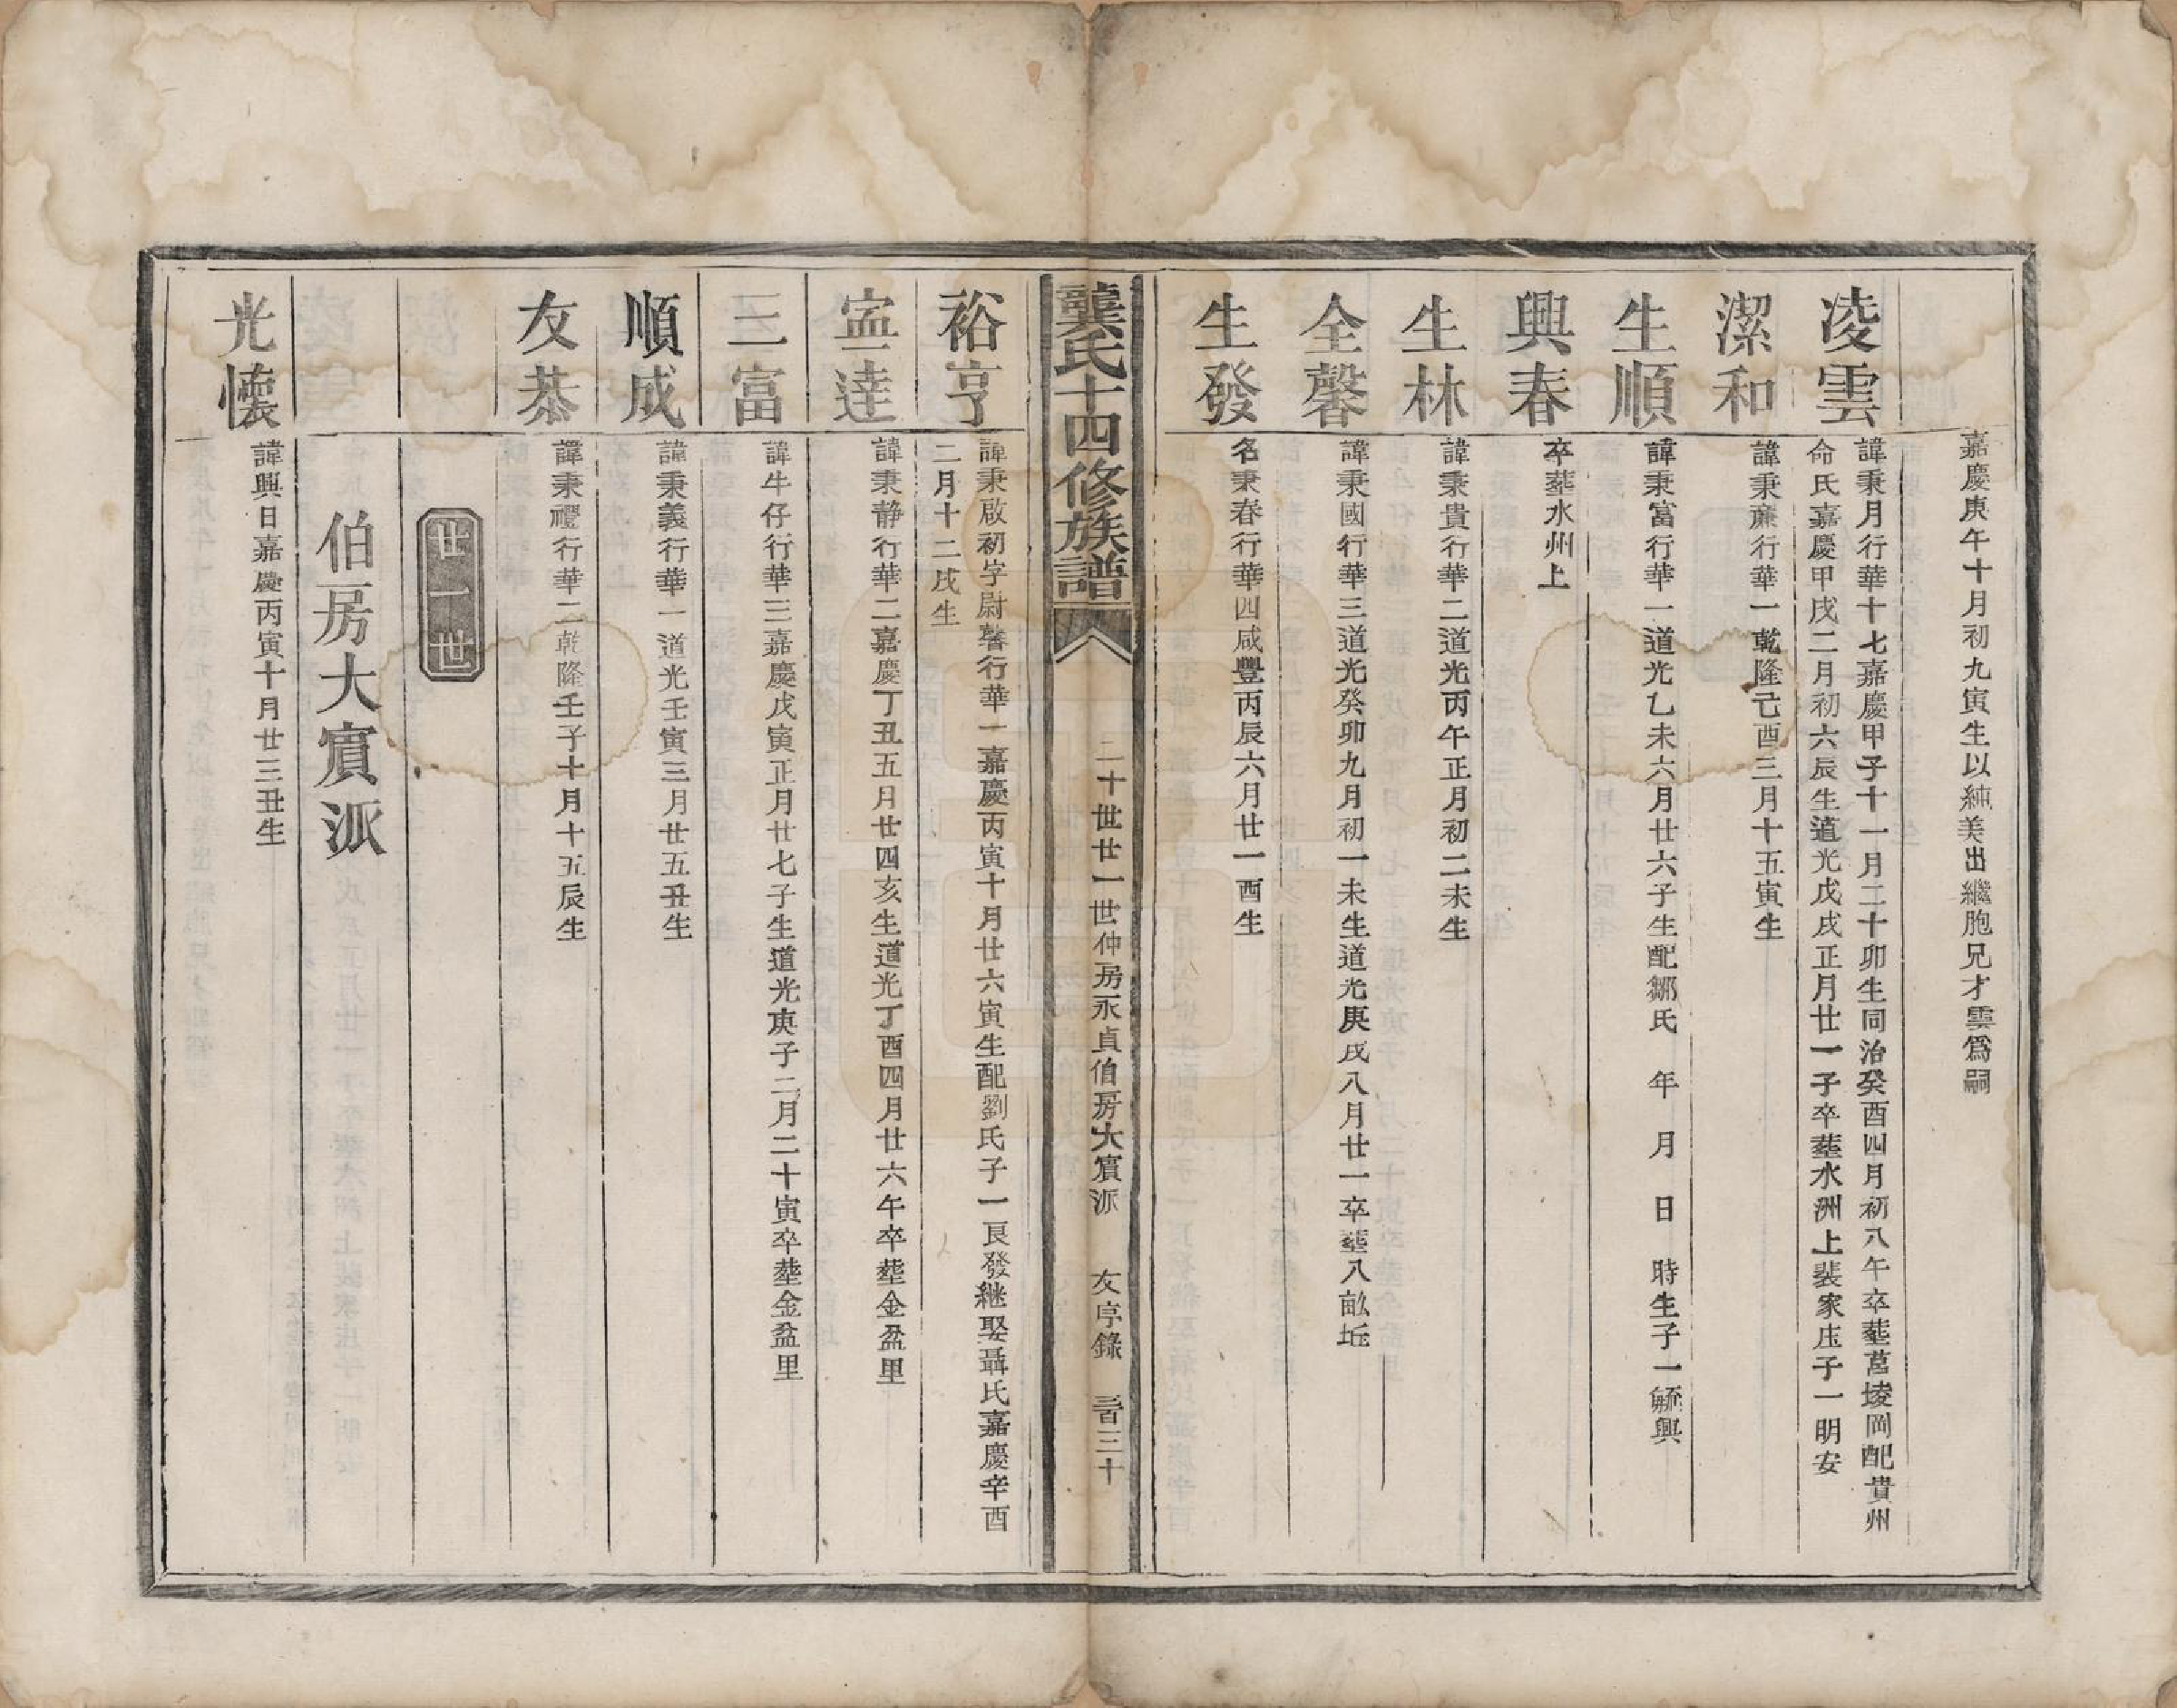 嘉慶庚午十月初九寅生以純美出繼胞兄才雲爲嗣
凌雲
諱秉月行華十七嘉慶甲子十一月二十卯生同治癸酉四月初八午卒塟莒堎岡配貴州
命氏嘉慶甲戌二月初六辰生道光戊戌正月廿一子卒塟水洲上裴家庄子一明安
潔和
諱秉廉行華一乾隆己酉三月十五寅生
生順
諱秉富行華一道光乙未六月廿六子生配鄒氏 年 月 日 時生子一毓興
興春
卒塟水州上
生林
諱秉貴行華二道光丙午正月初二未生
全馨
諱秉國行華三道光癸卯九月初一未生道光庚戌八月廿一卒塟八畝坵
生發
名秉春行華四咸豐丙辰六月廿一酉生
龔氏十四修族譜
二十世廿一世仲房永貞伯房大賓派 友序錄 三百三十
裕亨
諱秉啟初字尉馨行華一嘉慶丙寅十月廿六寅生配劉氏子一艮發継娶聶氏嘉慶辛酉
二月十二戌生
寍達
諱秉靜行華二嘉慶丁丑五月廿四亥生道光丁酉四月廿六午卒塟金盆里
三富
諱牛仔行華三嘉慶戊寅正月廿七子生道光庚子二月二十寅卒塟金盆里
順成
諱秉義行華一道光壬寅三月廿五丑生
友恭
諱秉禮行華二乾隆壬子十月十五辰生
廿一世
伯房大賓派
光懷
諱興日嘉慶丙寅十月廿三丑生